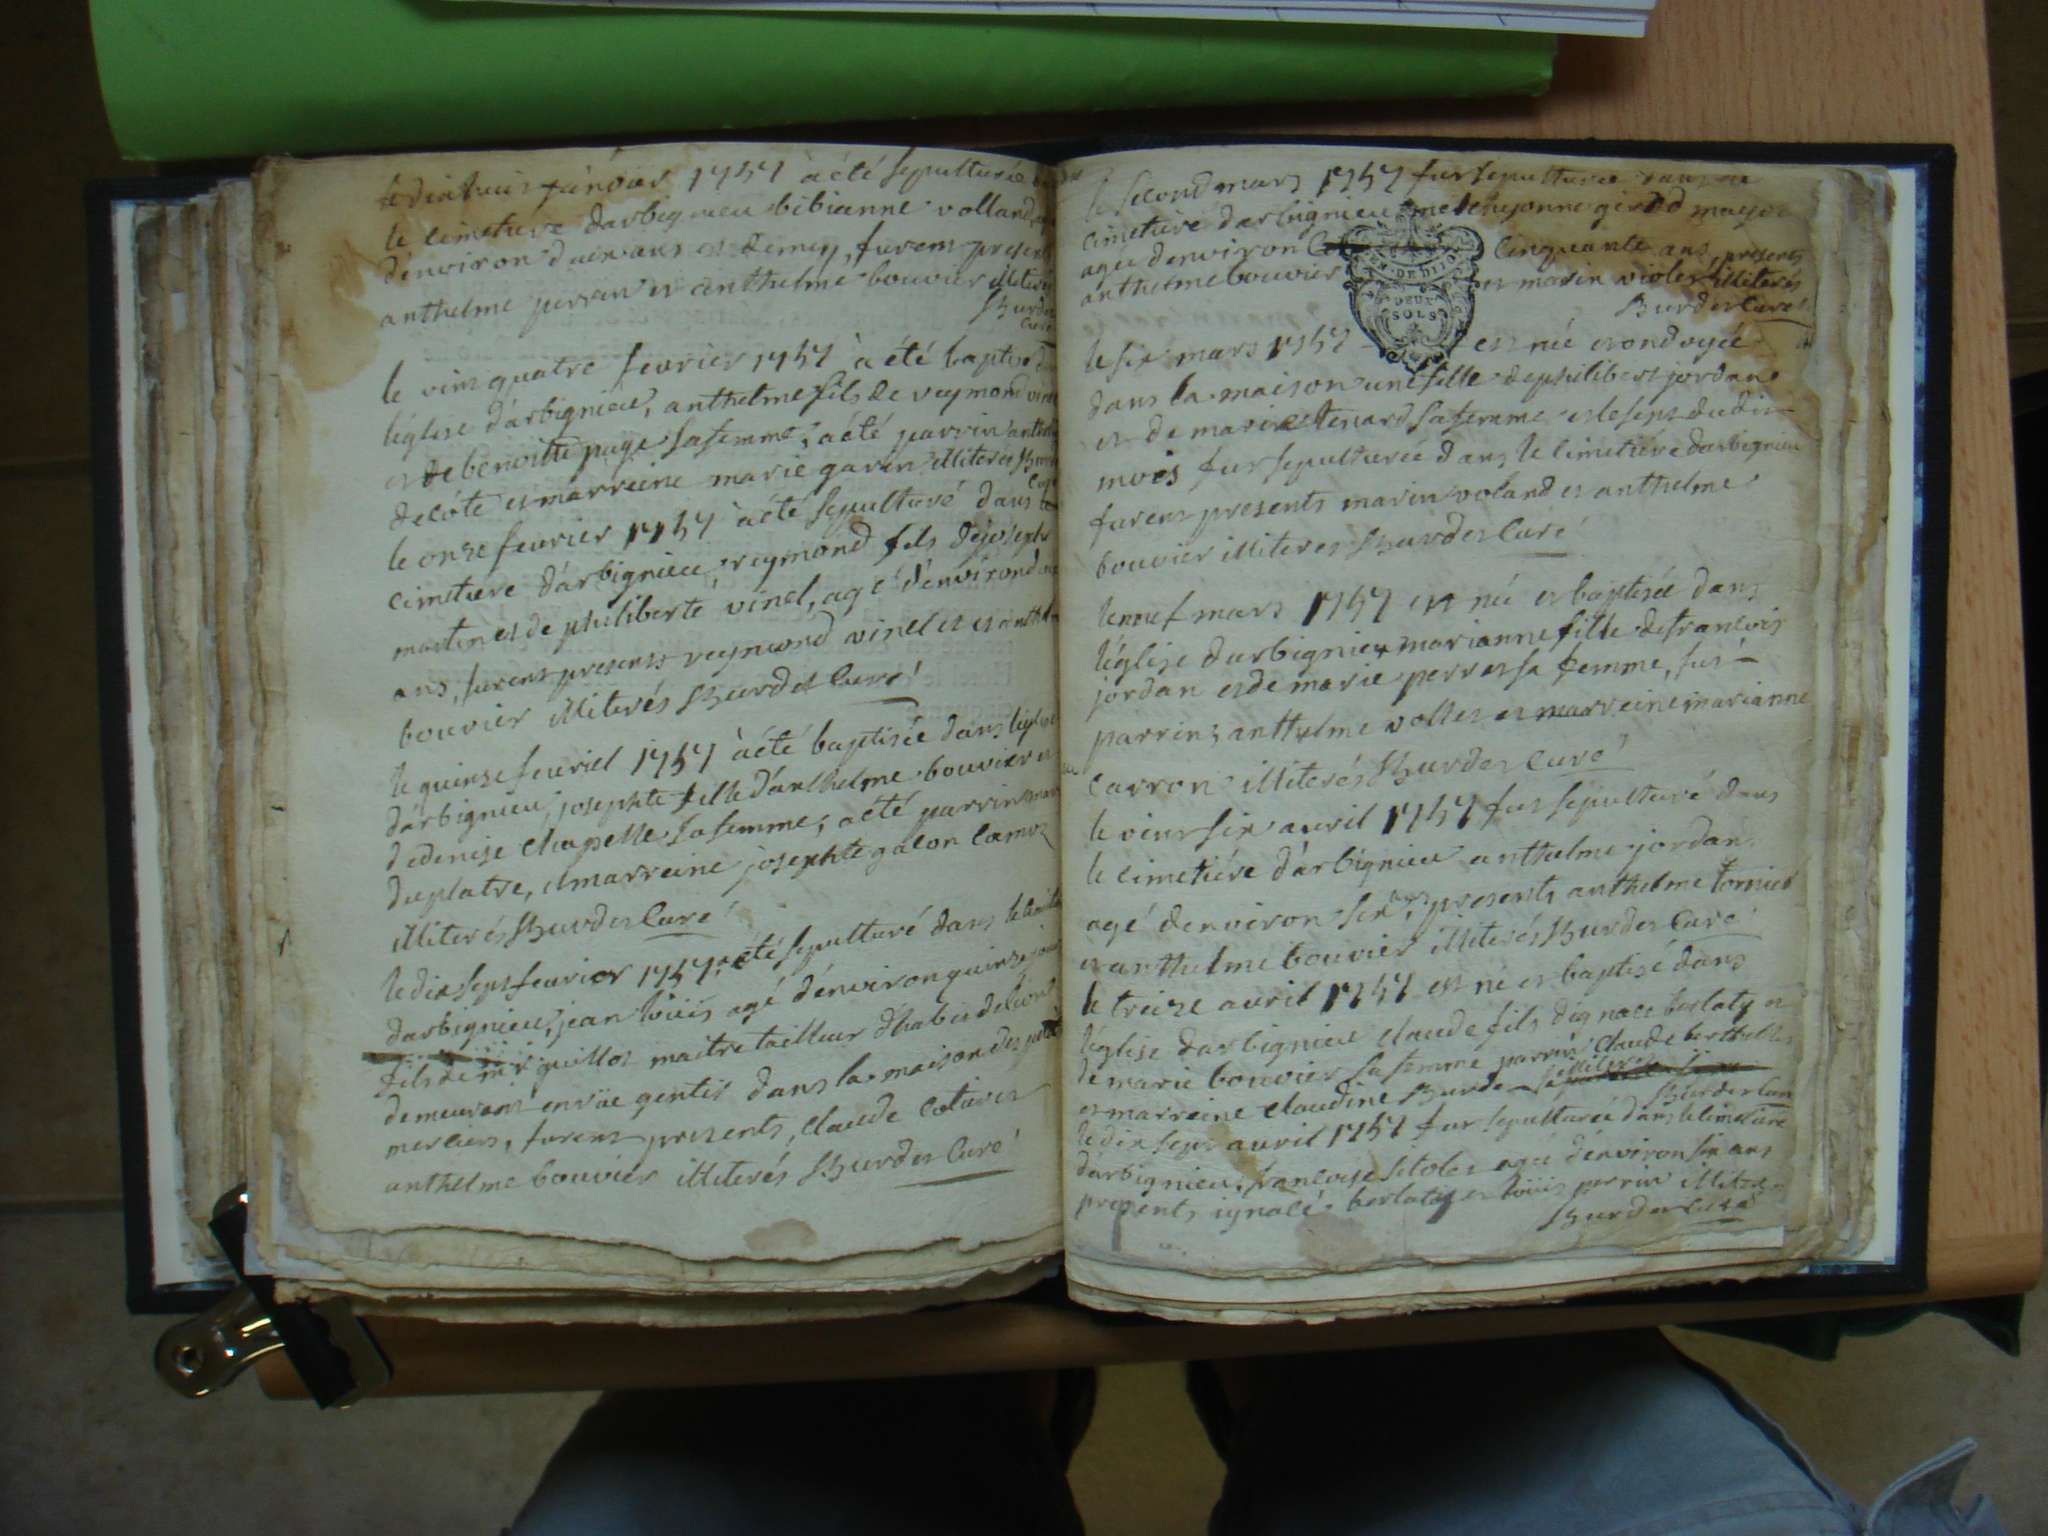 le dix huit janvier 1757 à été sepulturée
le cimetiere darbignieu bibianne volland
d'environ deux ans et demy, furent present
anthelme perran et anthelme bouvier illiterés
Burdet
Curé
le vint quatre fevrier 1757 à été baptisé
l'église d'arbignieu, anthelme fils de reymond
et de benoitte puge sa femme, a été parrin
de côte et marreine marie garin illiterés
le onze fevrier 1757 à été sepulturé dans
cimetiere d'arbignieu, reymond fils de joseph
martin et de philiberte vinel, agé d'environ
ans, furent presents reymond vinel et
bouvier illiterés Burdet Curé
le quinze fevriel 1757 à été baptisée dans l'église
d'arbignieu, josephte fille d'anthelme bouvier et
de denise chapelle sa femme, a été parrin
duplatre, et marreine josephte galon
illiterés Burdet Curé
le dix sept fevrier 1757 a été sepulturé dans le
darbignieu, jean loüis agé d'environ quinze
fils de guillot maitre tailleur d'habit de lion
demeurant en rüe gentit dans la maison des
merciers, furent presents, claude
anthelme bouvier illiterés Burdet Curé
le second mars 1757 fut sepulturée dans le
cimetiere darbignieu girod
agée denviron cinquante ans, presents
anthelme bouvier et marin violet illiterés
Burdet Curé
le six mars 1757 est née et ondoyée
dans la maison une fille de philibert jordan
et de marie tenard sa femme et le sept dudit
mois fut sepulturée dans le cimetiere darbignieu
furent presents marin voland et anthelme
bouvier illiteres Burdet Curé
le neuf mars 1757 est née et baptisée dans
l'église darbignieu marianne fille de francois
jordan et de marie perret sa femme, fut
parrin, anthelme vollet et marreine marianne
carron illiterés Burdet Curé
le vint six avril 1757 fut sepulturé dans
le cimetiére d'arbignieu anthelme jordan
agé denviron six ans, presents anthelme tornier
et anthelme bouvier illiterés Burdet Curé
le treize avril 1757 est né et baptisé dans
l'église darbignieu claude fils dignace berlaty et
de marie bouvier sa femme parrin claude
et marreine claudine Burdet illiterés
Burdet Curé
le dix sept avril 1757 fut sepulturée dans le cimetiere
d'arbignieu, francoise agée d'environ six ans
presents ignace berlaty et loüis perrin
Burdet Curé
DE DIJON
DEUX
SOLS